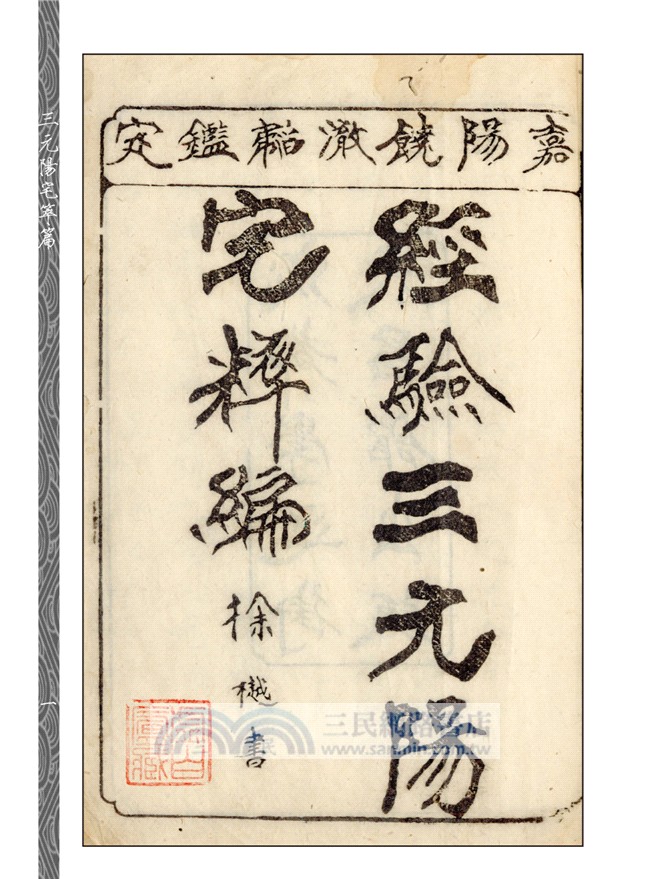 三元陽宅萃篇
一
嘉陽饒鑑定
經驗三元陽
宅粹編
徐樾書
三民網路書店
www.sanmin.com.tw